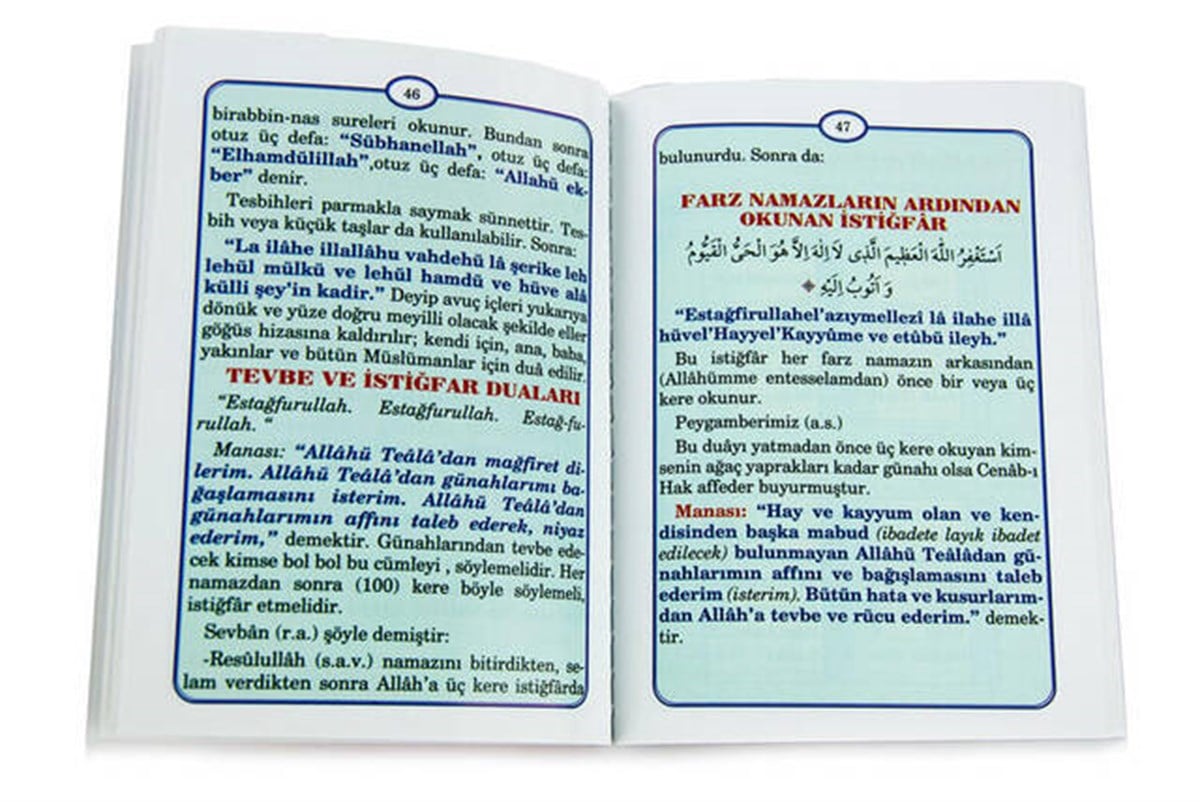 46
birabbin-nas sureleri okunur. Bundan sonra
otuz üç defa: “Sübhanellah”, otuz üç defa:
“Elhamdülillah”,otuz üç defa: “Allahü ek-
ber” denir.
Tesbihleri parmakla saymak sünnettir. Tes-
bih veya küçük taşlar da kullanılabilir. Sonra:
“La ilâhe illallâhu vahdehü lâ şerike leh
lehül mülkü ve lehül hamdü ve hüve alâ
külli şey’in kadir.” Deyip avuç içleri yukarıya
dönük ve yüze doğru meyilli olacak şekilde eller
göğüs hizasına kaldırılır; kendi için, ana, baba,
yakınlar ve bütün Müslümanlar için duâ edilir.
TEVBE VE İSTİĞFAR DUALARI
“Estağfurullah. Estağfurullah. Estağ-fu-
rullah. “
Manası: “Allâhü Teâlâ’dan mağfiret di-
lerim. Allâhü Teâlâ’dan günahlarımı ba-
ğaşlamasını isterim. Allâhü Teâlâ’dan
günahlarımın affını taleb ederek, niyaz
ederim,” demektir. Günahlarından tevbe ede-
cek kimse bol bol bu cümleyi , söylemelidir. Her
namazdan sonra (100) kere böyle söylemeli,
istiğfâr etmelidir.
Sevbân (r.a.) şöyle demiştir:
-Resûlullâh (s.a.v.) namazını bitirdikten, se-
lam verdikten sonra Allâh’a üç kere istiğfârda
47
bulunurdu. Sonra da:
FARZ NAMAZLARIN ARDINDAN
OKUNAN İSTİĞFÂR
اَسْتَغْفِرُ اللّٰهَ الْعَظِيمَ الَّذِى لاَ اِلٰهَ اِلاَّ هُوَ الْحَىُّ الْقَيُّومُ
وَ اَتُوبُ اِلَيْهِ
“Estağfirullahel’azıymellezî lâ ilahe illâ
hüvel’Hayyel’Kayyûme ve etûbü ileyh.”
Bu istiğfâr her farz namazın arkasından
(Allâhümme entesselamdan) önce bir veya üç
kere okunur.
Peygamberimiz (a.s.)
Bu duâyı yatmadan önce üç kere okuyan kim-
senin ağaç yaprakları kadar günahı olsa Cenâb-ı
Hak affeder buyurmuştur.
Manası: “Hay ve kayyum olan ve ken-
disinden başka mabud (ibadete layık ibadet
edilecek) bulunmayan Allâhü Teâlâdan gü-
nahlarımın affını ve bağışlamasını taleb
ederim (isterim). Bütün hata ve kusurlarım-
dan Allâh’a tevbe ve rücu ederim.” demek-
tir.